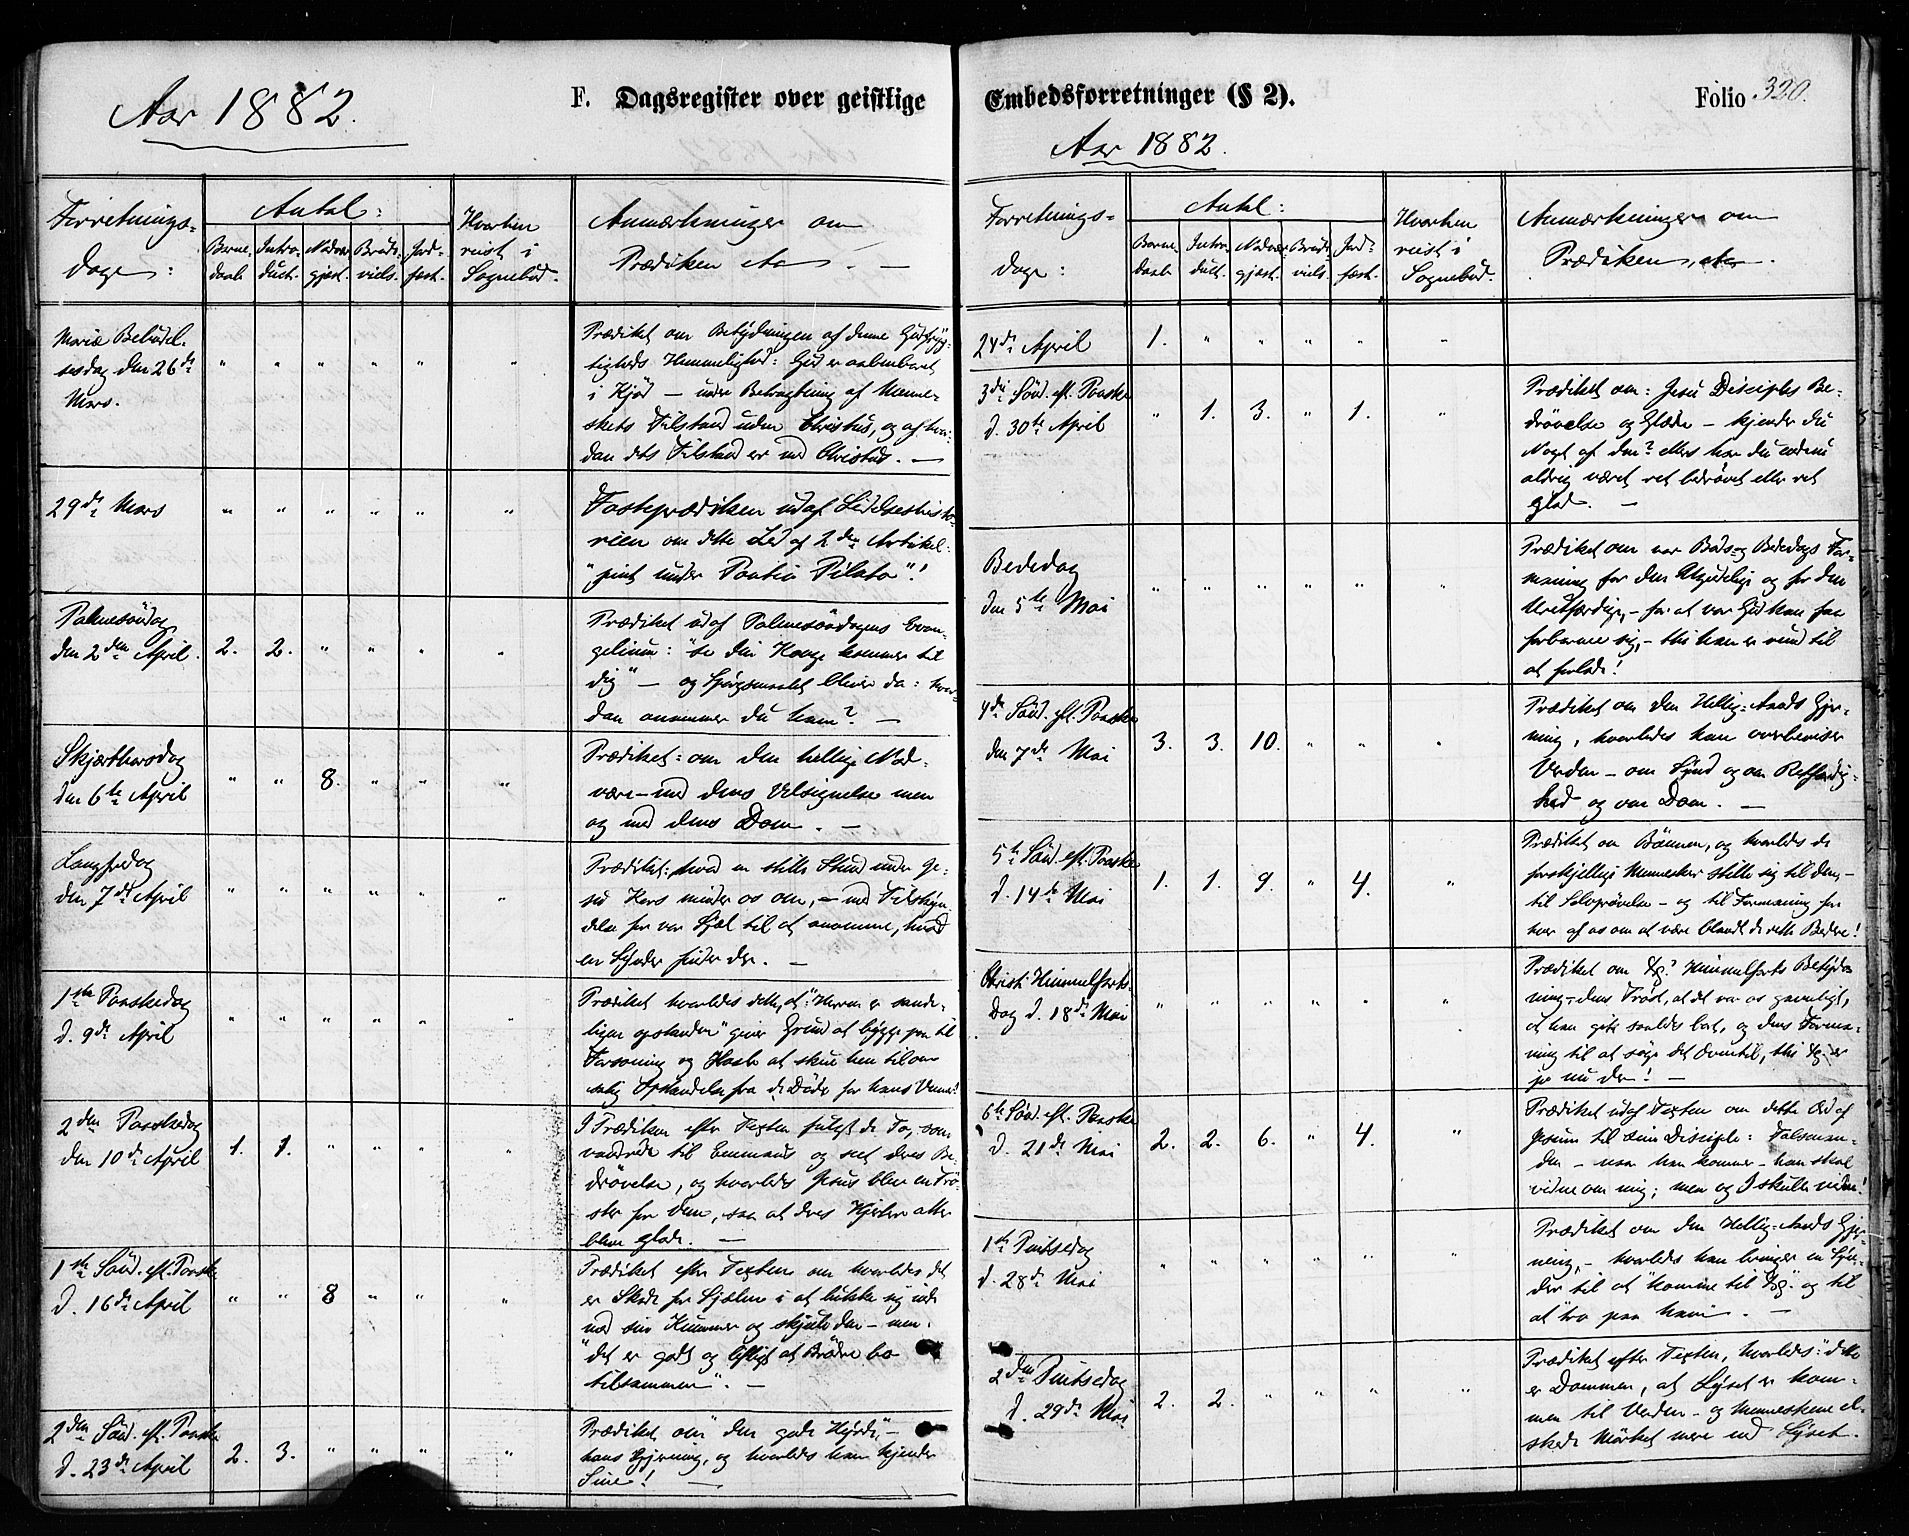 Aar 1882.
F. Dagsregister over geistlige
Forretnings-
dage:
Antal:
Barne
daab.
Intro-
duct.
Nadver
gjæst.
Brude
viels.
Jord-
fæst.
Hvorhen
reist i
Sognebud.
Anmærkninger om
Prædiken &c.
Mariæ Bebudel-
sesdag den 26de
Mars.
" " " " " "
Prædiket om Betydningen af denne Gudfryg-
tigheds Hemmelighed: Gud er aabenbaret
i Kjød — under Betragtning af Menne-
skets Tilstand uden Christus, og af hvor-
dan dets Tilstand er med Christus. —
29de Mars
" " " " " "
Fasteprædiken udaf Lidelseshisto-
rien om dette Led af 2den Artikel:
"pint under Pontio Pilato"!
Palmesöndag
den 2den April.
2. 2. " " " "
Prædiket udaf Palmesöndagens Evan-
gelium: "se din Konge kommer til
dig" — og Spørgsmaalet bliver da: hvor-
dan annammer du ham? —
Skjærthorsdag
den 6te April
" " 8. " " "
Prædiket: om den hellige Nad-
være — med dens Velsignelse men
og med dens Dom. —
Langfredag
den 7de April
" " " " " "
Prædiket: hvad en stille Stund under Je-
su Kors minder os om, — med Tilskyn-
delse for vor Sjæl til at annamme, hvad
en Synder finder der. —
1ste Paaskedag
d. 9de April
" " " " " "
Prædiket hvorledes dette, at: "Herren er sande-
ligen opstanden" giver Grund at bygge paa til
Forsoning og Haab at skue hen til om
salig Opstandelse fra de Døde for hans Venner!
2den Paaskedag
den 10de April
1. 1. " " " "
I Prædiken efter Texten fulgt de To, som
vandrede til Emmaus og seet deres Be-
drøvelse, og hvorledes Jesus blev en Trö-
ster for dem, saa at deres Hjerter atter
blev glade. —
1ste Sönd. eft. Paaske
d. 16de April
" " 8 " " "
Prædiket efter Texten om hvorledes det
er Skade for Sjælen i at lukke sig inde
med sin Kummer og skjule den — men:
"det er godt og lifligt at Brödre bo
tilsammen". —
2den Sönd. eft. Paaske
d. 23de April
2. 3. " " " "
Prædiket om "den gode Hyrde", —
hans Gjerning, og hvorledes han kjender
Sine! —
Embedsforretninger (§ 2).
Folio 320.
Aar 1882.
Forretnings-
dage:
Antal:
Barne
daab.
Intro
duct.
Nadver
gjæst.
Brude
viels.
Jord-
fæst.
Hvorhen
reist i
Sognebud.
Anmærkninger om
Prædiken, etc.
24de April
1. " " " " "
3die Sönd. eft. Paaske
d. 30te April
" 1. 3. " 1. "
Prædiket om: Jesu Disciples Be-
drøvelse og Glæde — kjender du
Noget af den? ellers har du endnu
aldrig været ret bedrøvet eller ret
glad. —
Bededag
den 5te Mai
" " " " " "
Prædiket om vor Bods- og Bededags For-
maning for den Ugudelige og for den
Uretfærdige, — for at vor Gud kan faa
forbarme sig, — thi han er rund til
at forlade!
4de Sönd. eft. Paaske
den 7de Mai
3. 3. 10. " " "
Prædiket om den Hellig-Aands Gjer-
ning, hvorledes han overbeviser
Verden — om Synd og om Retfærdig-
hed og om Dom. —
5te Sönd. eft. Paaske
d. 14de Mai
1. 1. 9. " 4. "
Prædiket om Bönnen, og hvorledes de
forskjellige Mennesker stille sig til den, —
til Selvprøvelse — og til Formaning for
hver af os om at være blandt de rette Bedere!
Christi Himmelfarts-
Dag d. 18de Mai
" " " " " "
Prædiket om Xp. Himmelfarts Betyd-
ning — dens Tröst, at det var os gavnligt,
at han gik saaledes bort, og dens Forma-
ning til at søge det oventil, thi Xp. er
jo nu der! —
6te Sönd. eft. Paaske
d. 21de Mai
2. 2. 6. " 4. "
Prædiket udaf Texten om dette Ord af
Jesum til sine Disciple: Talsman-
den — naar han kommer — han skal
vidne om mig; men og I skulle vidne!
1ste Pintsedag
d. 28de Mai
" " " " " "
Prædiket om den Hellig-Aands Gjer-
ning, — hvorledes han bringer en Syn-
der til at "komme til Xp." og til
at tro paa ham. —
2den Pintsedag
d. 29de Mai
2. 2. " " " "
Prædiket efter Texten, hvorledes: "dette
er Dommen, at Lyset er kom-
men til Verden — og Menneskene el-
skede Mørket mere end Lyset.